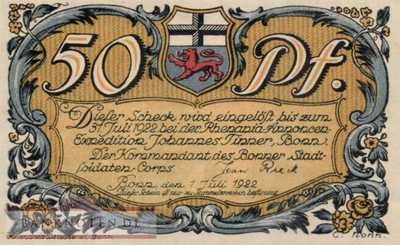 50 Pf.
Dieser Scheck wird eingelöst bis zum
31. Juli 1922 bei der Rhenania-Annoncen-
Expedition Johannes Tinner, Bonn.
Der Kommandant des Bonner Stadt-
soldaten-Corps.
Bonn, den 1. Juli 1922